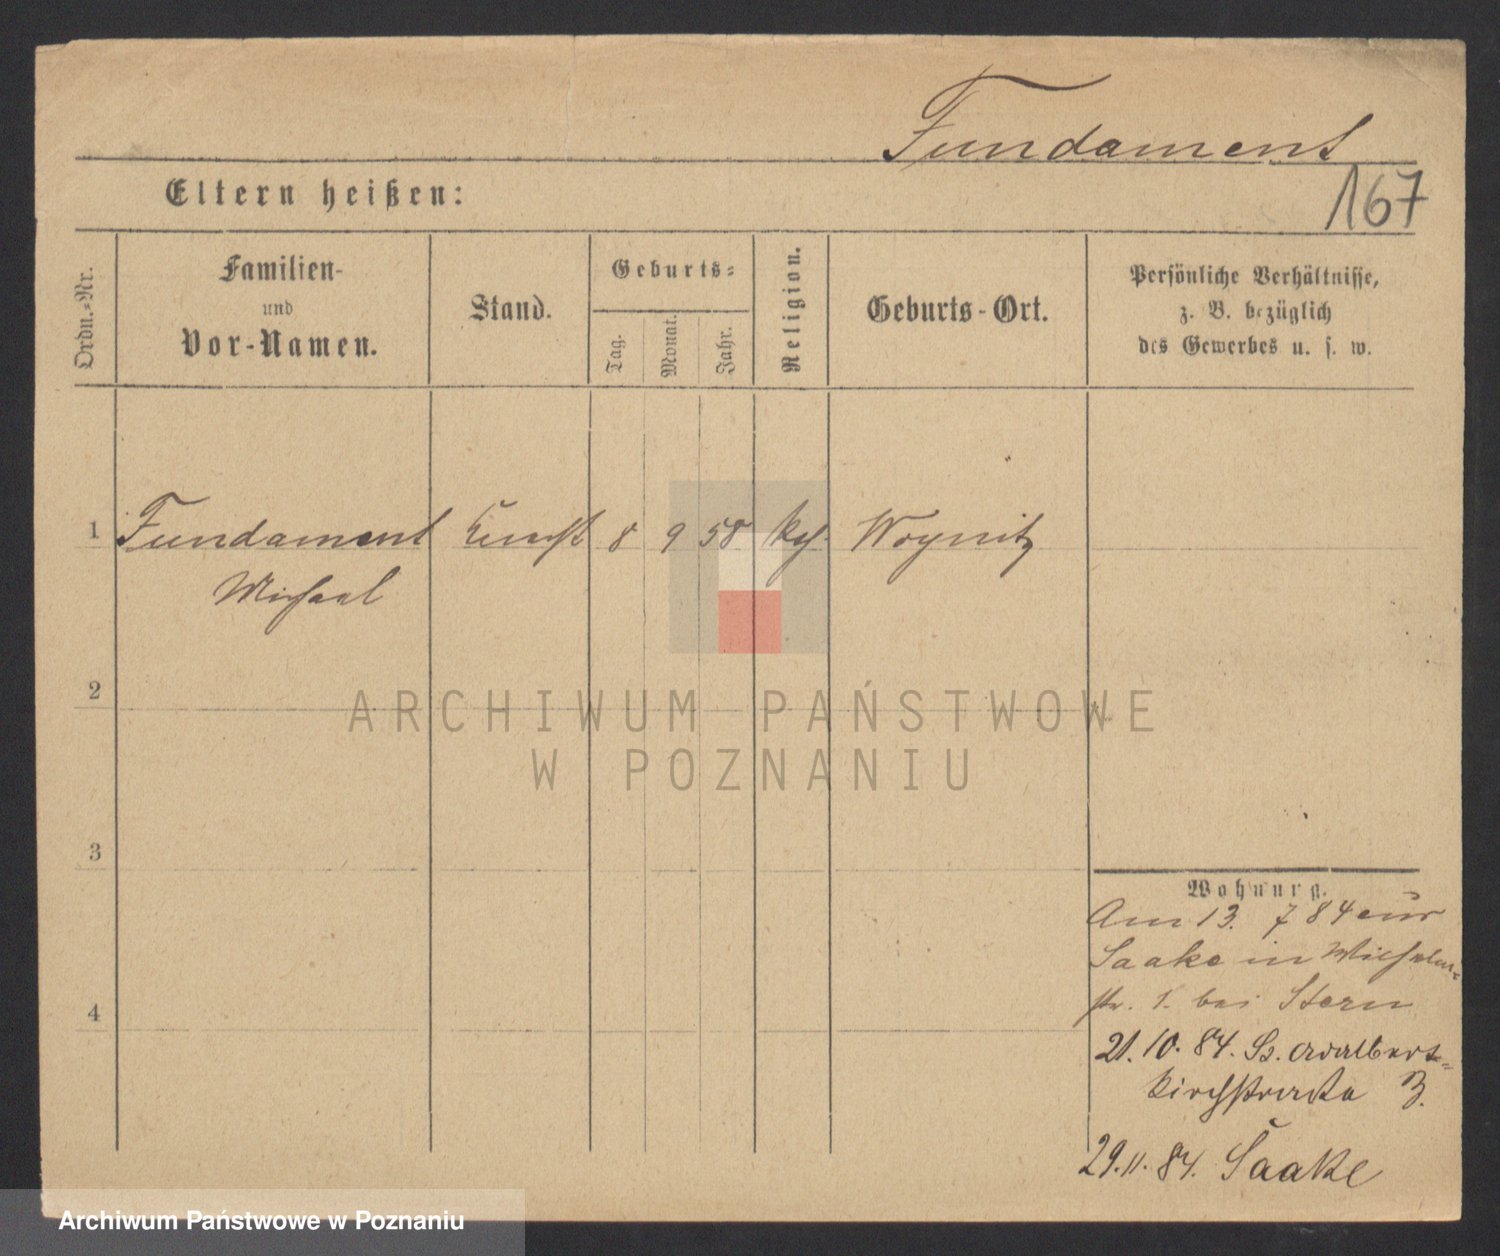 Fundament
167
Eltern heißen:
Ordn.-Nr.
Familien-
und
Vor-Namen.
Stand.
Geburts-
Tag.
Monat.
Jahr.
Religion.
Geburts-Ort.
Persönliche Verhältnisse,
z. B. bezüglich
des Gewerbes u. s. w.
1 Fundament 8 9 58 Woynitz
Michael
2
ARCHIWUM PAŃSTWOWE
W POZNANIU
3
4
Wohnung.
Am 13. 7 84 aus
Saake in Wilhelm-
str. 1. bei Stern
21. 10. 84. St. Adalbert-
Kirchstraße 3.
29. 11. 84. Saake
Archiwum Państwowe w Poznaniu